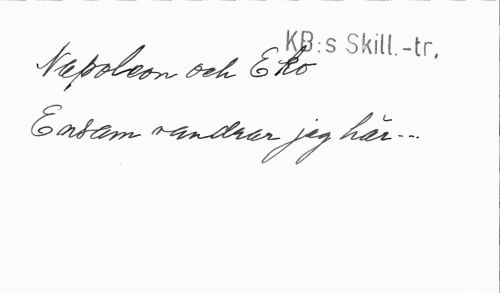 KB:s Skill.-tr.
Napoleon och Eko
Ensam vandrar jag här---